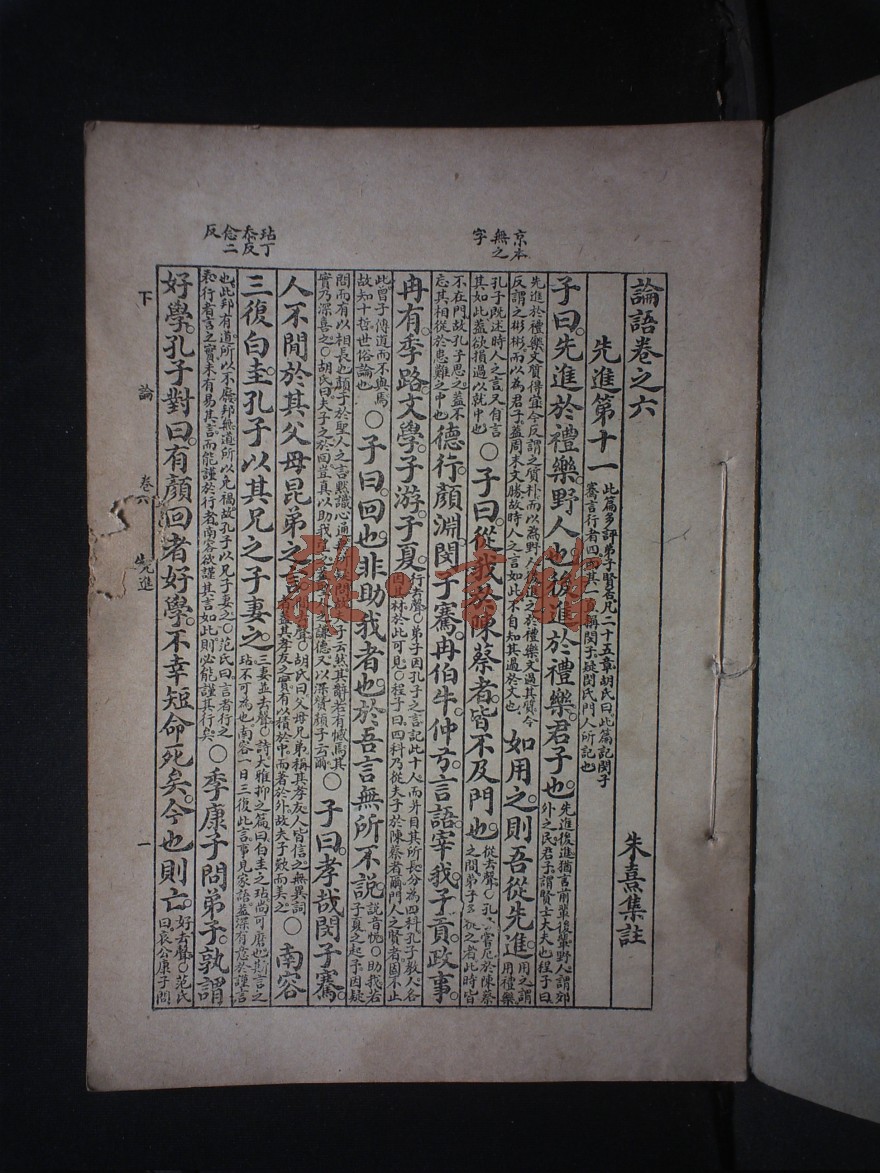 論語卷之六
朱熹集註
先進第十一
此篇多評弟子賢否凡二十五章胡氏曰此篇記閔子
騫言行者四而其一直稱閔子疑閔氏門人所記也
子曰先進於禮樂野人也後進於禮樂君子也
先進後進猶言前輩後輩野人謂郊
外之民君子謂賢士大夫也程子曰
先進於禮樂文質得宜今反謂之質朴而以為野人後進之於禮樂文過其質今
反謂之彬彬而以為君子蓋周末文勝故時人之言如此不自知其過於文也
如用之則吾從先進
用之謂
用禮樂
孔子既述時人之言又自言
其如此蓋欲損過以就中也
○子曰從我於陳蔡者皆不及門也
從去聲○孔子嘗厄於陳蔡
之間弟子多從之者此時皆
不在門故孔子思之蓋不
忘其相從於患難之中也
德行顏淵閔子騫冉伯牛仲弓言語宰我子貢政事
冉有季路文學子游子夏
行去聲○弟子因孔子之言記此十人而并目其所長分為四科孔子教人各
因其材於此可見○程子曰四科乃從夫子於陳蔡者爾門人之賢者固不止
此曾子傳道而不與焉
故知十哲世俗論也
○子曰回也非助我者也於吾言無所不說
說音悅○助我若
子夏之起予因疑
問而有以相長也顏子於聖人之言默識心通無所疑問故夫子云然其辭若有憾焉其
實乃深喜之○胡氏曰夫子之於回豈真以助我望之蓋聖人之謙德又以深贊顏子云爾
○子曰孝哉閔子騫
人不間於其父母昆弟之言
間去聲○胡氏曰父母兄弟稱其孝友人皆信之無異詞
者蓋其孝友之實有以積於中而著於外故夫子歎而美之
○南容
三復白圭孔子以其兄之子妻之
三妻並去聲○詩大雅抑之篇曰白圭之玷尚可磨也斯言之
玷不可為也南容一日三復此言事見家語蓋深有意於謹言
也此邦有道所以不廢邦無道所以免禍故孔子以兄子妻之○范氏曰言者行之
表行者言之實未有易其言而能謹於行者南容欲謹其言如此則必能謹其行矣
○季康子問弟子孰謂
好學孔子對曰有顏回者好學不幸短命死矣今也則亡
好去聲○范氏
曰哀公康子問
京本
無之
字
玷丁
忝反
念二
反
下 論 卷六 先進 一